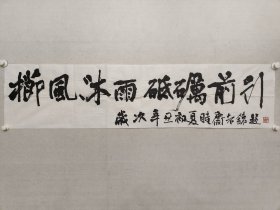 櫛風沐雨砥礪前行
歲次辛丑初夏時